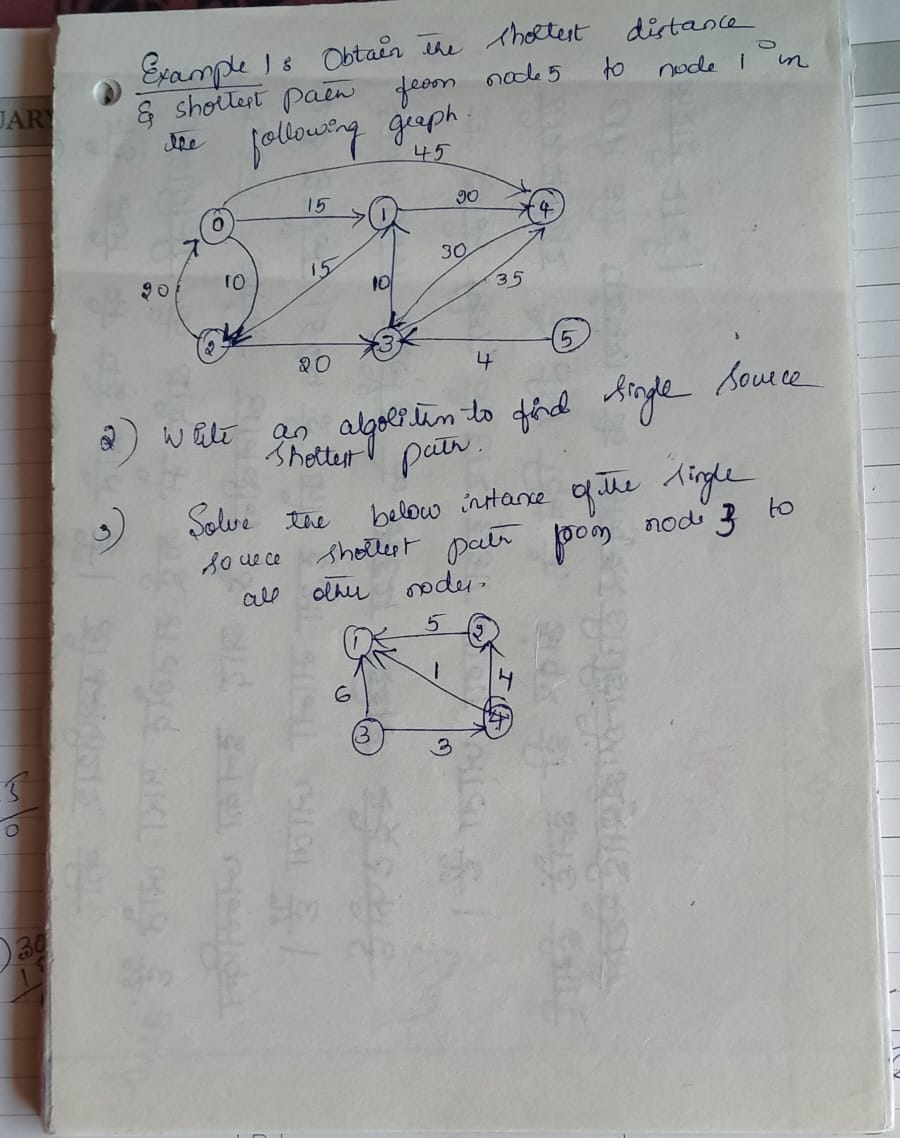 Example 1: Obtain the shortest distance
& shortest path from node 5 to node 1 in
the following graph.
45
0 15 1 20 4
20 10 15 10 30 35
2 20 3 4 5
2) Write an algorithm to find single source
shortest path.
3) Solve the below instance of the single
source shortest path from node 3 to
all other nodes.
1 5 2
6 1 4
3 3 4
UARY
5
0
30
1